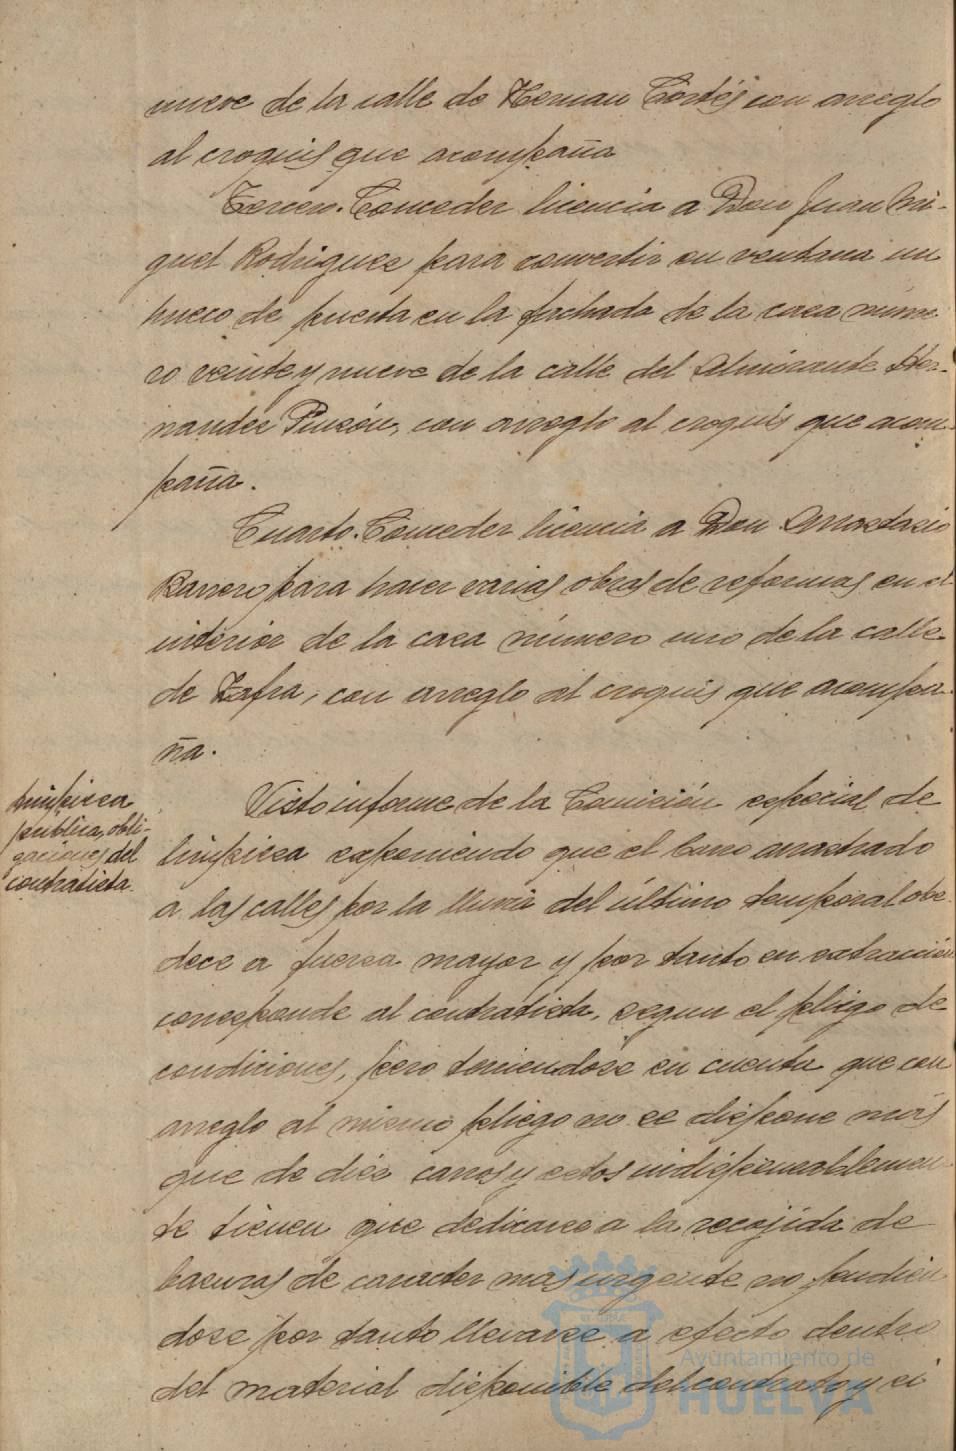 nueve de la calle de Hernan Cortés con arreglo
al croquis que acompaña
Tercero. Conceder licencia a Don Juan Mi-
guel Rodriguez para convertir en ventana un
hueco de puerta en la fachada de la casa núme-
ro veinte y nueve de la calle del Almirante Her-
nandez Pinzón, con arreglo al croquis que acom-
paña.
Cuarto. Conceder licencia a Don Anastasio
Barrero para hacer varias obras de reformas en el
interior de la casa número uno de la calle
de Zafra, con arreglo al croquis que acompa-
ña.
Limpieza
pública, obli-
gaciones del
contratista.
Visto informe de la Comisión especial de
limpieza exponiendo que el barro arrastrado
a las calles por la lluvia del último temporal obe-
dece a fuerza mayor y por tanto su extracción
corresponde al contratista, segun el pliego de
condiciones, pero teniendose en cuenta que con
arreglo al mismo pliego no se dispone más
que de diez carros y estos indispensablemen-
te tienen que dedicarse a la recojida de
basuras de caracter mas urgente no pudien
dose por tanto llevarse a efecto dentro
del material disponible del contrato y si
Ayuntamiento de
HUELVA